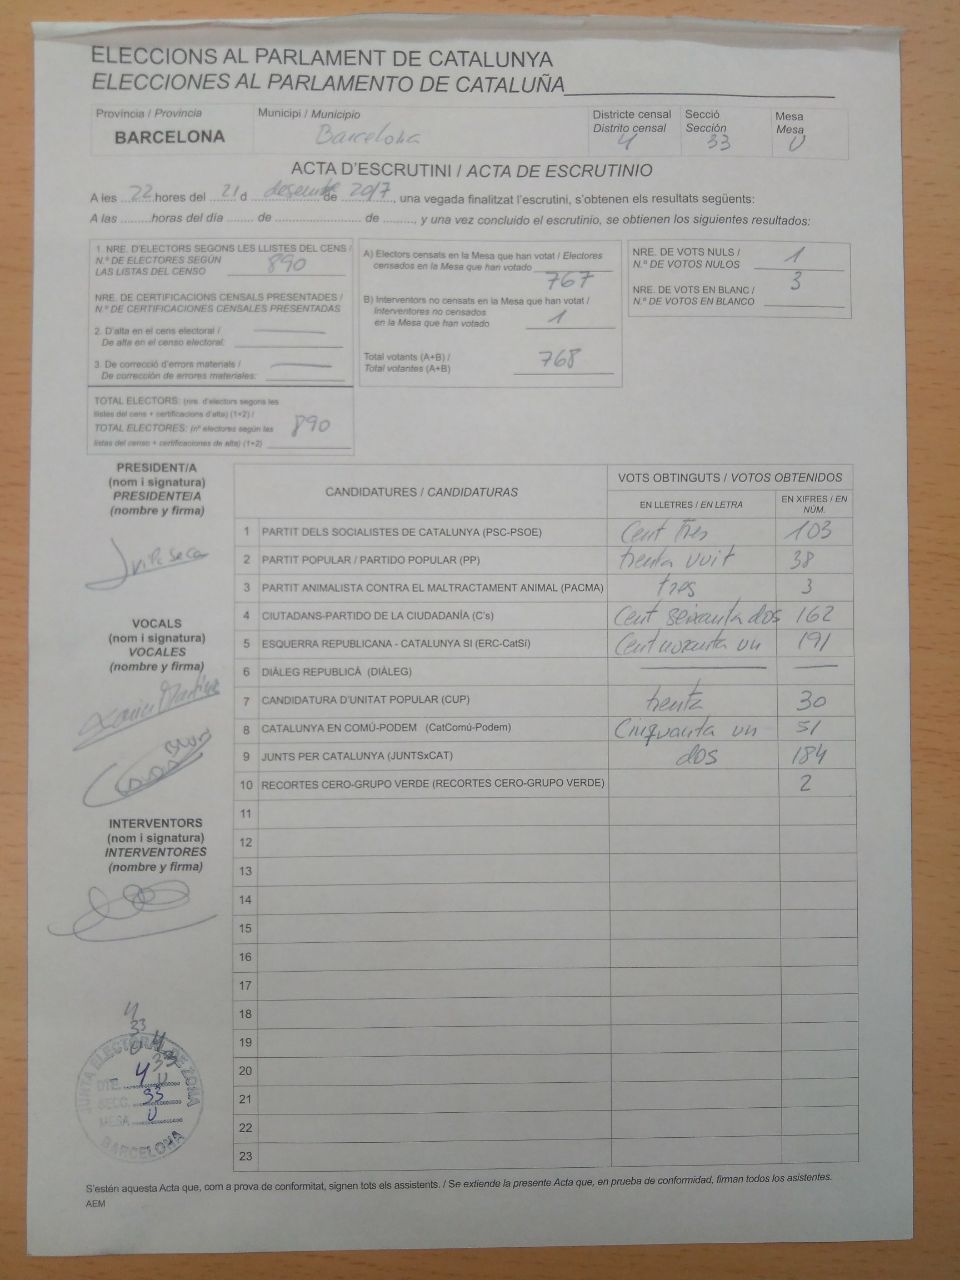 ELECCIONS AL PARLAMENT DE CATALUNYA
ELECCIONES AL PARLAMENTO DE CATALUÑA
Província / Provincia
BARCELONA
Municipi / Municipio
Barcelona
Districte censal
Distrito censal
4
Secció
Sección
33
Mesa
Mesa
U
ACTA D'ESCRUTINI / ACTA DE ESCRUTINIO
A les 22 hores del 21 d desembre de 2017, una vegada finalitzat l'escrutini, s'obtenen els resultats següents:
A las ......... horas del día ........ de ........................ de ........., y una vez concluido el escrutinio, se obtienen los siguientes resultados:
1. NRE. D'ELECTORS SEGONS LES LLISTES DEL CENS /
N.º DE ELECTORES SEGÚN
LAS LISTAS DEL CENSO 890
NRE. DE CERTIFICACIONS CENSALS PRESENTADES /
N.º DE CERTIFICACIONES CENSALES PRESENTADAS
2. D'alta en el cens electoral /
De alta en el censo electoral:
3. De correcció d'errors materials /
De corrección de errores materiales:
TOTAL ELECTORS: (nre. d'electors segons les
llistes del cens + certificacions d'alta) (1+2) /
TOTAL ELECTORES: (nº electores según las
listas del censo + certificaciones de alta) (1+2) 890
A) Electors censats en la Mesa que han votat / Electores
censados en la Mesa que han votado 767
B) Interventors no censats en la Mesa que han votat /
Interventores no censados
en la Mesa que han votado 1
Total votants (A+B) /
Total votantes (A+B) 768
NRE. DE VOTS NULS /
N.º DE VOTOS NULOS 1
NRE. DE VOTS EN BLANC /
N.º DE VOTOS EN BLANCO 3
PRESIDENT/A
(nom i signatura)
PRESIDENTE/A
(nombre y firma)
VOCALS
(nom i signatura)
VOCALES
(nombre y firma)
Xavier Martínez
INTERVENTORS
(nom i signatura)
INTERVENTORES
(nombre y firma)
CANDIDATURES / CANDIDATURAS
VOTS OBTINGUTS / VOTOS OBTENIDOS
EN LLETRES / EN LETRA
EN XIFRES / EN NÚM.
1 PARTIT DELS SOCIALISTES DE CATALUNYA (PSC-PSOE) Cent Tres 103
2 PARTIT POPULAR / PARTIDO POPULAR (PP) trenta vuit 38
3 PARTIT ANIMALISTA CONTRA EL MALTRACTAMENT ANIMAL (PACMA) tres 3
4 CIUTADANS-PARTIDO DE LA CIUDADANÍA (C's) Cent seixanta dos 162
5 ESQUERRA REPUBLICANA - CATALUNYA SI (ERC-CatSí) Cent noranta un 191
6 DIÀLEG REPUBLICÀ (DIÀLEG)
7 CANDIDATURA D'UNITAT POPULAR (CUP) trenta 30
8 CATALUNYA EN COMÚ-PODEM (CatComú-Podem) Cinquanta un 51
9 JUNTS PER CATALUNYA (JUNTSxCAT) dos 184
10 RECORTES CERO-GRUPO VERDE (RECORTES CERO-GRUPO VERDE) 2
11
12
13
14
15
16
17
18
19
20
21
22
23
4
33
U
4
33
U
JUNTA ELECTORAL DE ZONA
DTE. 4
SECC. 33
MESA U
BARCELONA
S'estén aquesta Acta que, com a prova de conformitat, signen tots els assistents. / Se extiende la presente Acta que, en prueba de conformidad, firman todos los asistentes.
AEM